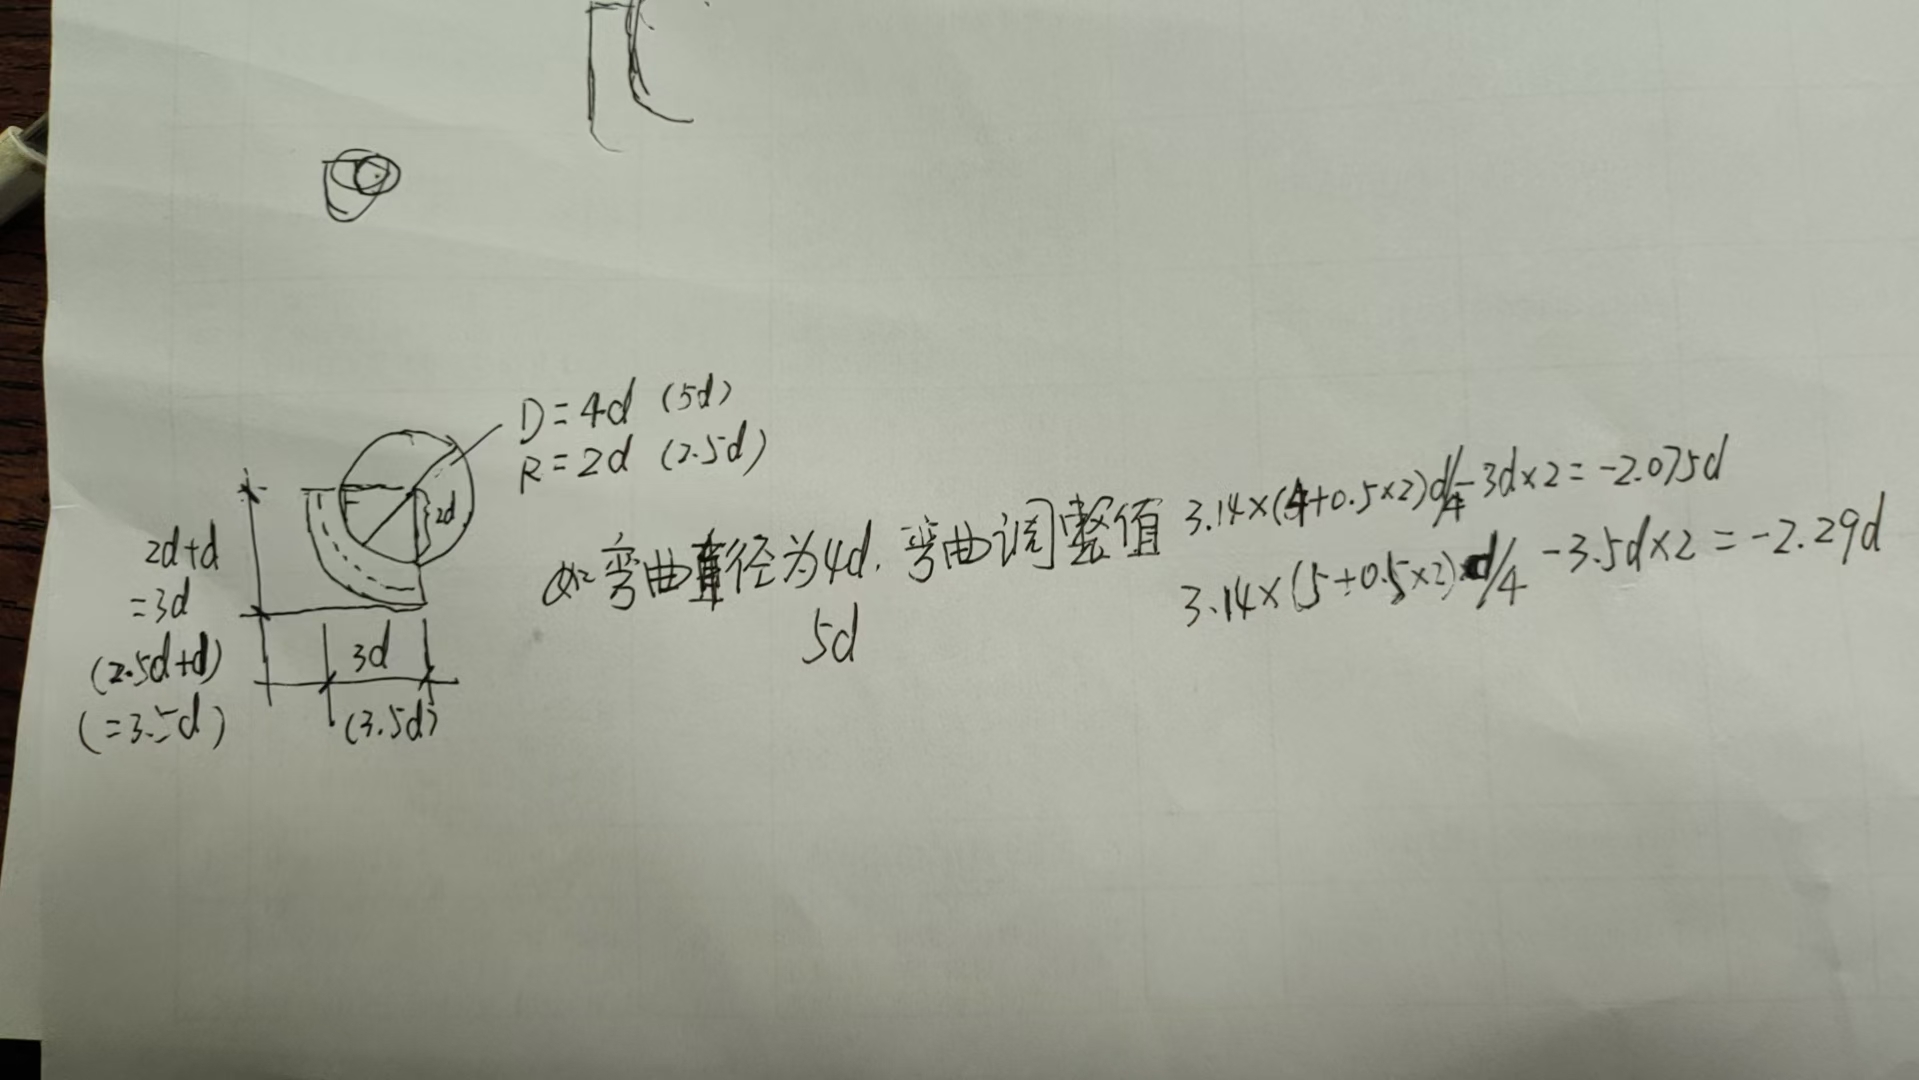 D=4d (5d)
R=2d (2.5d)
2d
2d+d
=3d
(2.5d+d)
(=3.5d)
3d
(3.5d)
弯曲直径为4d.弯曲调整值 3.14×(4+0.5×2)d/4-3d×2=-2.075d
5d 3.14×(5+0.5×2)d/4-3.5d×2=-2.29d